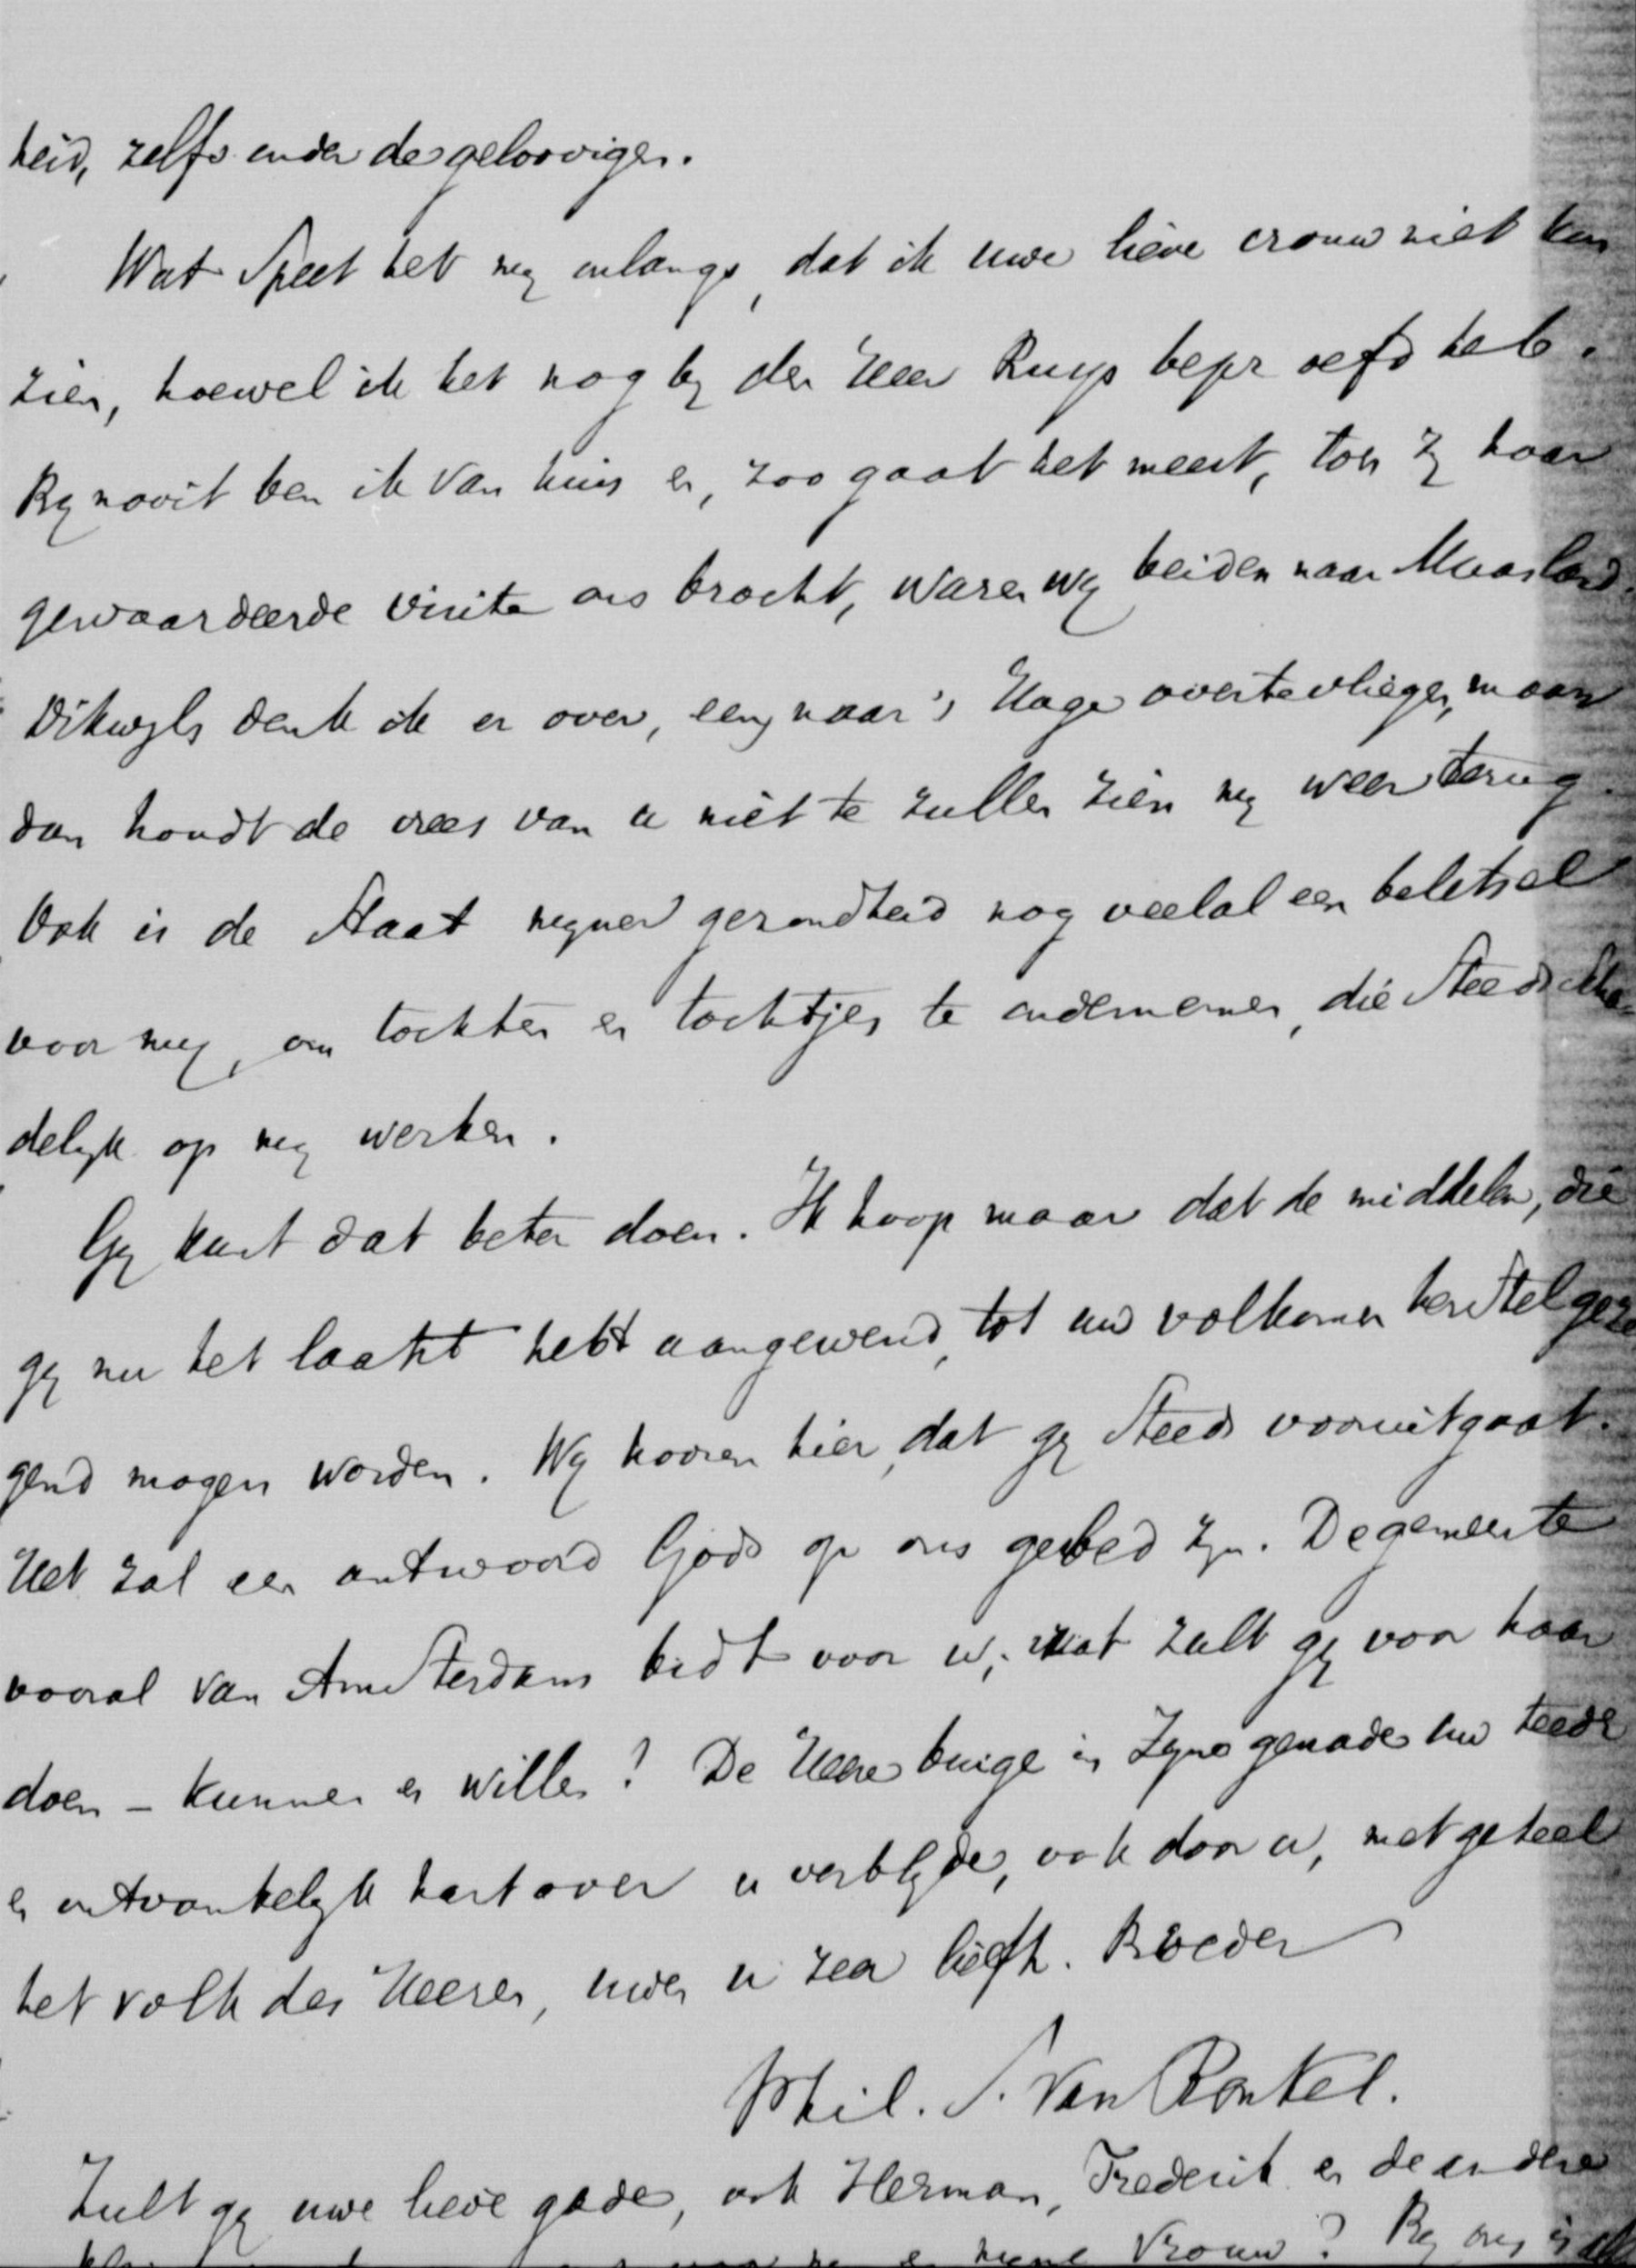 heid, zelfs onder de geloovigen.
Wat speet het mij onlangs, dat ik uwe lieve vrouw niet kon
zien, hoewel ik het nog bij den Heer Ruys beproefd heb.
Bij nooit ben ik van huis en, zoo gaat het meest, toen zij haar
gewaardeerde visite ons bracht, waren wij beiden naar Maasland.
Dikwijls denk ik er over, eens naar 's Hage overtevliegen, maar
dan houdt de vrees van u niet te zullen zien mij weer terug.
Ook is de staat mijner gezondheid nog veelal een beletsel
voor mij, om tochten en tochtjes te ondernemen, die steeds scha-
delijk op mij werken.
Gij kunt dat beter doen. Ik hoop maar dat de middelen, die
gij nu het laatst hebt aangewend, tot uw volkomen herstel geze
gend mogen worden. Wij hooren hier, dat gij steeds vooruitgaat.
Het zal een antwoord Gods op ons gebed zijn. De gemeente
vooral van Amsterdam bidt voor u; wat zult gij voor haar
doen – kunnen en willen? De Heere buige in Zijne genade uw teeder
en ontvankelijk hart over u verblijde, ook door u, met geheel
het volk des Heeren, uwen u zeer liefh. Broeder
Phil. S. van Ronkel.
Zult gij uwe lieve gade, ook Herman, Frederik en de andere
mijne vrouw? Bij ons is